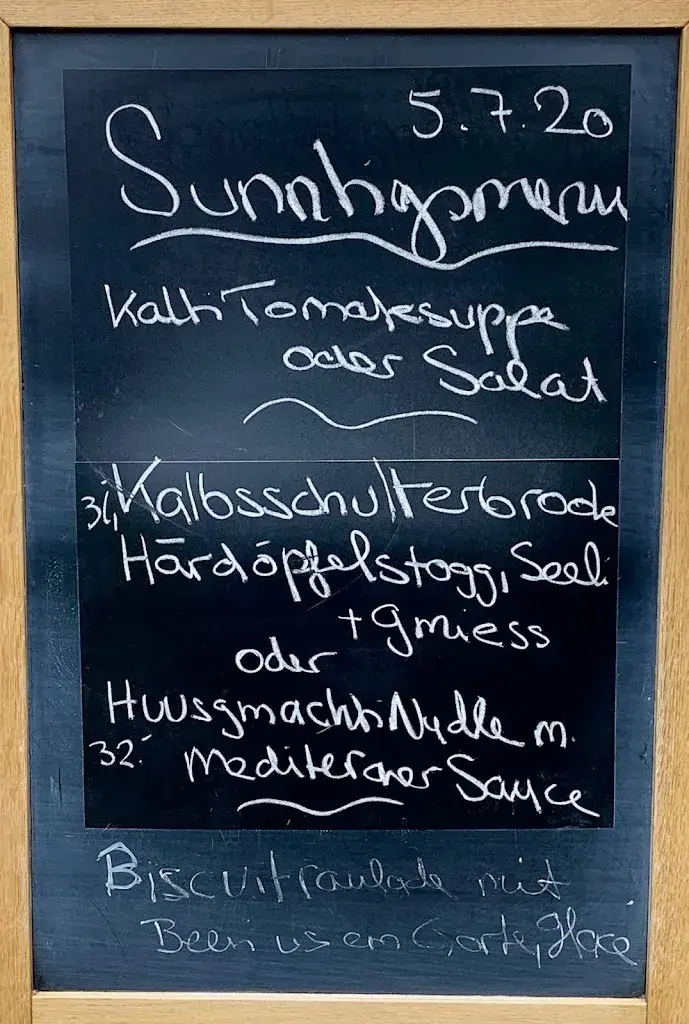 5.7.20
Sunntigsmenu
Kalti Tomatesuppe
oder Salat
Kalbsschulterbrode
Härdöpfelstogg, Seeli
+ gmiess
oder
Huusgmachti Nudle m.
32.- mediteraner Sauce
Biscuitroulade mit
Beeri us em Garte, Glace